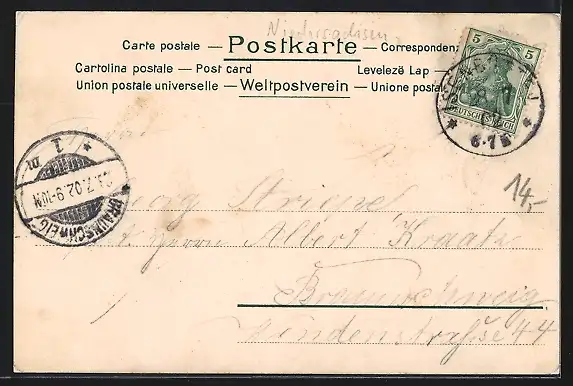 Niedersachsen
Carte postale — Postkarte — Correspondenz
Cartolina postale — Post card Levelező Lap —
Union postale universelle — Weltpostverein — Unione postal
5 5
DEUTSCHES REICH
6-7N
1
m
.7.02.9-10V.
BRAUNSCHWEIG
14,-
Georg Striepe
Herrn Albert Kraatz
Braunschweig
Lindenstraße 44